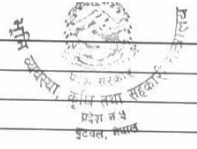 व्यवस्था, कृषि तथा सहकारी
प्रदेश सरकार
प्रदेश नं ५
बुटवल, नेपाल